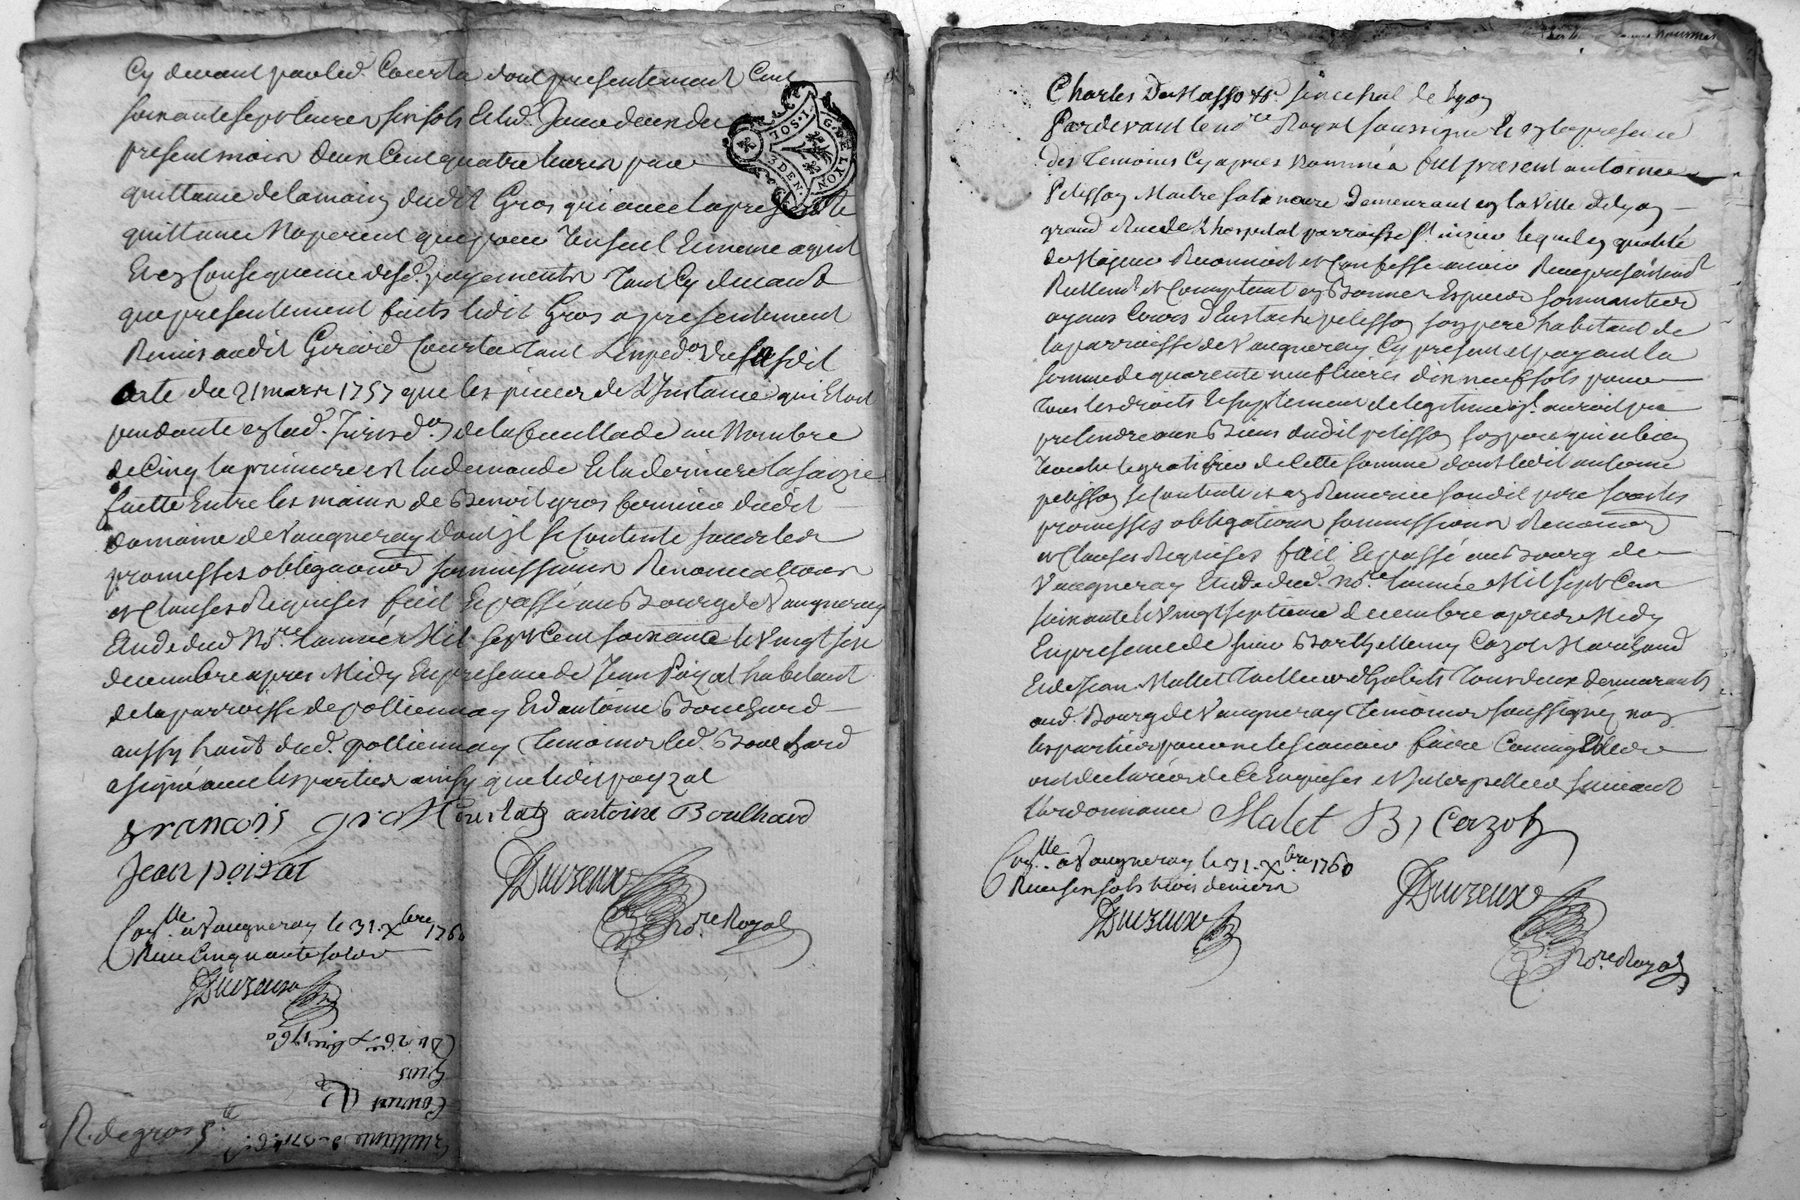 Cy devant par led. Courta dont presentement Cent
soixante sept livres six sols Et led. Jour deux du
present mois deux Cent quatre livres par
quittance de la main dudit Gros qui avec la presente
quittance N'operent que pour Un seul Et meme aquit
Et en Consequence desd. payements Tant Cy devant
que presentement faits ledit Gros a presentement
Remis audit Gerard Courta Tant L'exped.on du susdit
acte du 21 mars 1757 que les pieces de L'Instance qui Etoit
pendante en lad. Jurisd.on de la feuillade au Nombre
de Cinq la premiere est la demande Et la derniere la saizie
faitte Entre les mains de Benoit gros fermier dudit
domaine de Vaugneray dont il se Contente sous les
promesses obligations soumissions Renonciations
et Clauses Requises fait Et passé au Bourg de Vaugneray
Etude dud. No.re l'année Mil sept Cent soixante le Vingt six
decembre apres Midy En presence de Jean Poizat habitant
de la parroisse de pollionnay Et d'antoine Bouchard
aussy habt. dud. pollionnay Temoins led. Bouchard
a signé avec les parties ainsy que ledit poyzat
francois gros Courtat antoine Boulhard
Jean poizat
Duizeux
No.re Royal
Con.lle a Vaugneray le 31. Xbre 1760
Reçu Cinquante sols
Duizeux
Du 26e Xbre 1760
Gros
Courtat
Quittance
R. de gros
G. DE LYON
TOS. I.
3 DEN.
Charles DeMasso &c. senechal de Lyon
Pardevant le no.re Royal soussigné Et en la presence
des Temoins Cy apres Nommés fut present antoinne
Pelisson Maitre fabr demeurant en la Ville de Lyon
grand Rue de L'hopital parroisse St. Nizier lequel en qualité
de Majeur Reconnoit et Confesse avoir Reçu presentement
Rellemt. et Comptant en Bonnes Especes sonnantes
ayant Cours d'Eustache pelisson son pere habitant de
la parroisse de Vaugneray Cy present et payant la
somme de quarente neuf livres dix neuf sols pour
Tous les droits Et suplement de legitime qu'il auroit pu
pretendre aux Biens dudit pelisson son pere qui a bien
voulu le gratifier de Cette somme dont ledit antoine
pelisson se Contente et en Remercie sondit pere sous les
promesses obligations soumissions Renon.ons
et Clauses Requises fait Et passé au Bourg de
Vaugneray Etude dud. No.re l'année Mil sept Cent
soixante le Vingt septieme decembre apres Midy
En presence de sieur Barthellemy Cozon Marchand
Et de Jean Mallet Tailleur d'habits Tous deux demeurants
aud. Bourg de Vaugneray Temoins soussignés non
les parties pour ne le sçavoir faire Comme Elles
ont declarées de Ce Enquises et Interpellées suivant
l'ordonnance Malet B, Cozon
Con.lle a Vaugneray le 31. Xbre 1760
Reçu six sols trois deniers
Duizeux
Duizeux
No.re Royal